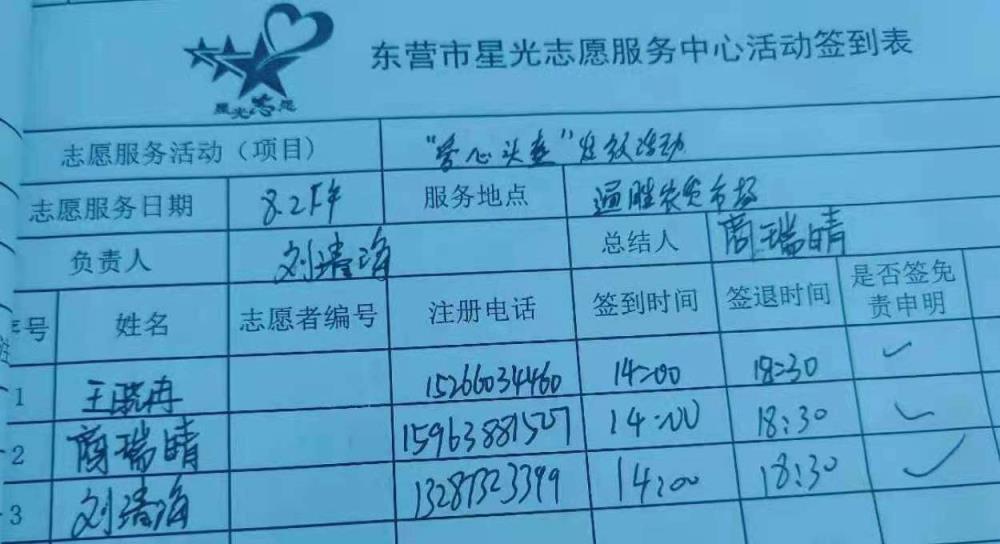 星光志愿
东营市星光志愿服务中心活动签到表
志愿服务活动（项目） "爱心头盔"发放活动
志愿服务日期 8.2下午 服务地点 通胜农贸市场
负责人 刘清海 总结人 商瑞晴
序号 姓名 志愿者编号 注册电话 签到时间 签退时间 是否签免责申明
1 王晓冉 15266034460 14:00 18:30 ✓
2 商瑞晴 15963881527 14:00 18:30 ✓
3 刘清海 13287323399 14:00 18:30 ✓